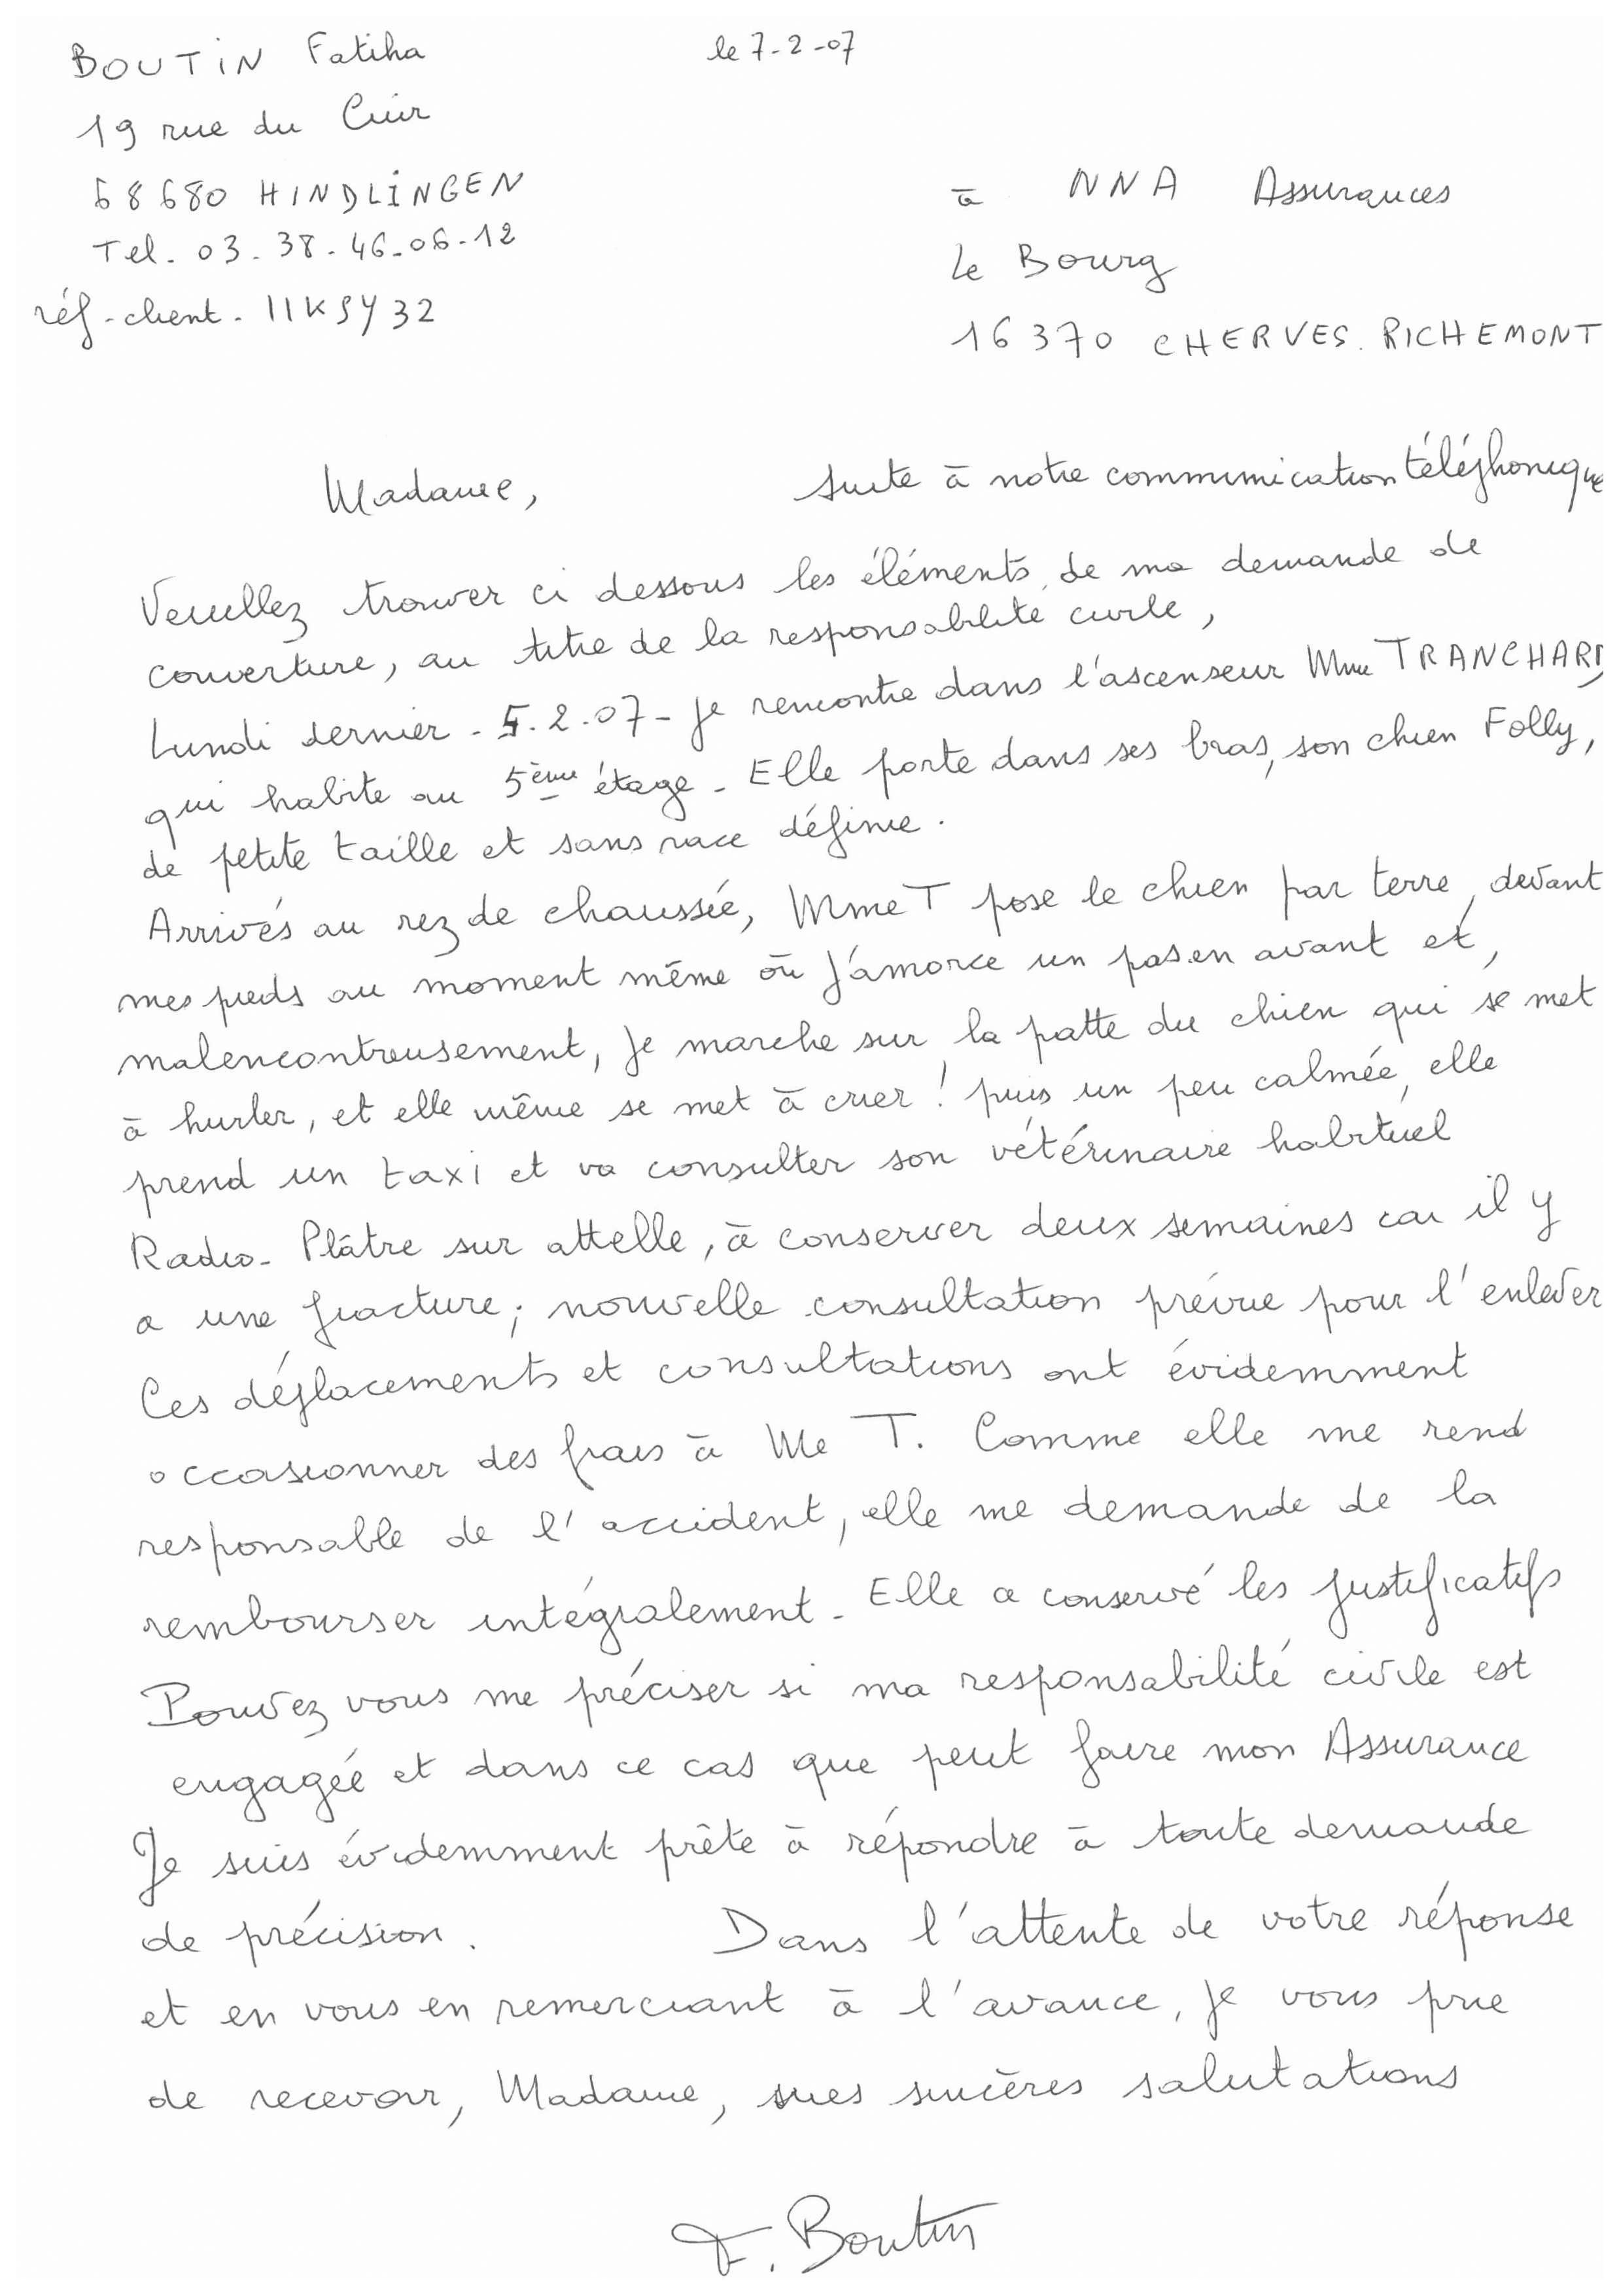 BOUTIN Fatiha
le 7-2-07
19 rue du Cuir
68680 HINDLINGEN
Tel. 03.38.46.06.12
réf-client. IIKSY32
à NNA Assurances
Le Bourg
16370 CHERVES.RICHEMONT
Madame, suite à notre communication téléphonique
Veuillez trouver ci dessous les éléments de ma demande de
couverture, au titre de la responsabilité civile,
Lundi dernier - 5.2.07 - je rencontre dans l'ascenseur Mme TRANCHARD,
qui habite au 5ème étage. Elle porte dans ses bras, son chien Folly,
de petite taille et sans race définie.
Arrivés au rez de chaussée, Mme T pose le chien par terre, devant
mes pieds au moment même où j'amorce un pas en avant et,
malencontreusement, je marche sur la patte du chien qui se met
à hurler, et elle même se met à crier ! puis un peu calmée, elle
prend un taxi et va consulter son vétérinaire habituel
Radio - Plâtre sur attelle, à conserver deux semaines car il y
a une fracture ; nouvelle consultation prévue pour l'enlever
Ces déplacements et consultations ont évidemment
occasionner des frais à Me T. Comme elle me rend
responsable de l'accident, elle me demande de la
rembourser intégralement - Elle a conservé les justificatifs
Pouvez vous me préciser si ma responsabilité civile est
engagée et dans ce cas que peut faire mon Assurance
Je suis évidemment prête à répondre à toute demande
de précision. Dans l'attente de votre réponse
et en vous en remerciant à l'avance, je vous prie
de recevoir, Madame, mes sincères salutations
F. Boutin